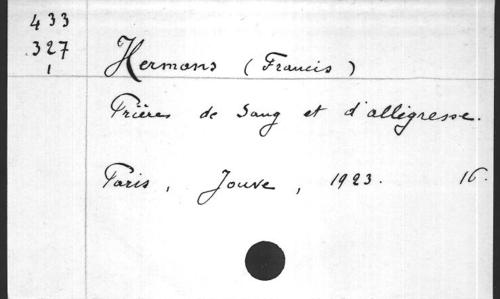 433
327
1
Hermans (Francis)
Prières de Sang et d'allégresse.
Paris, Jouve, 1923. 16.